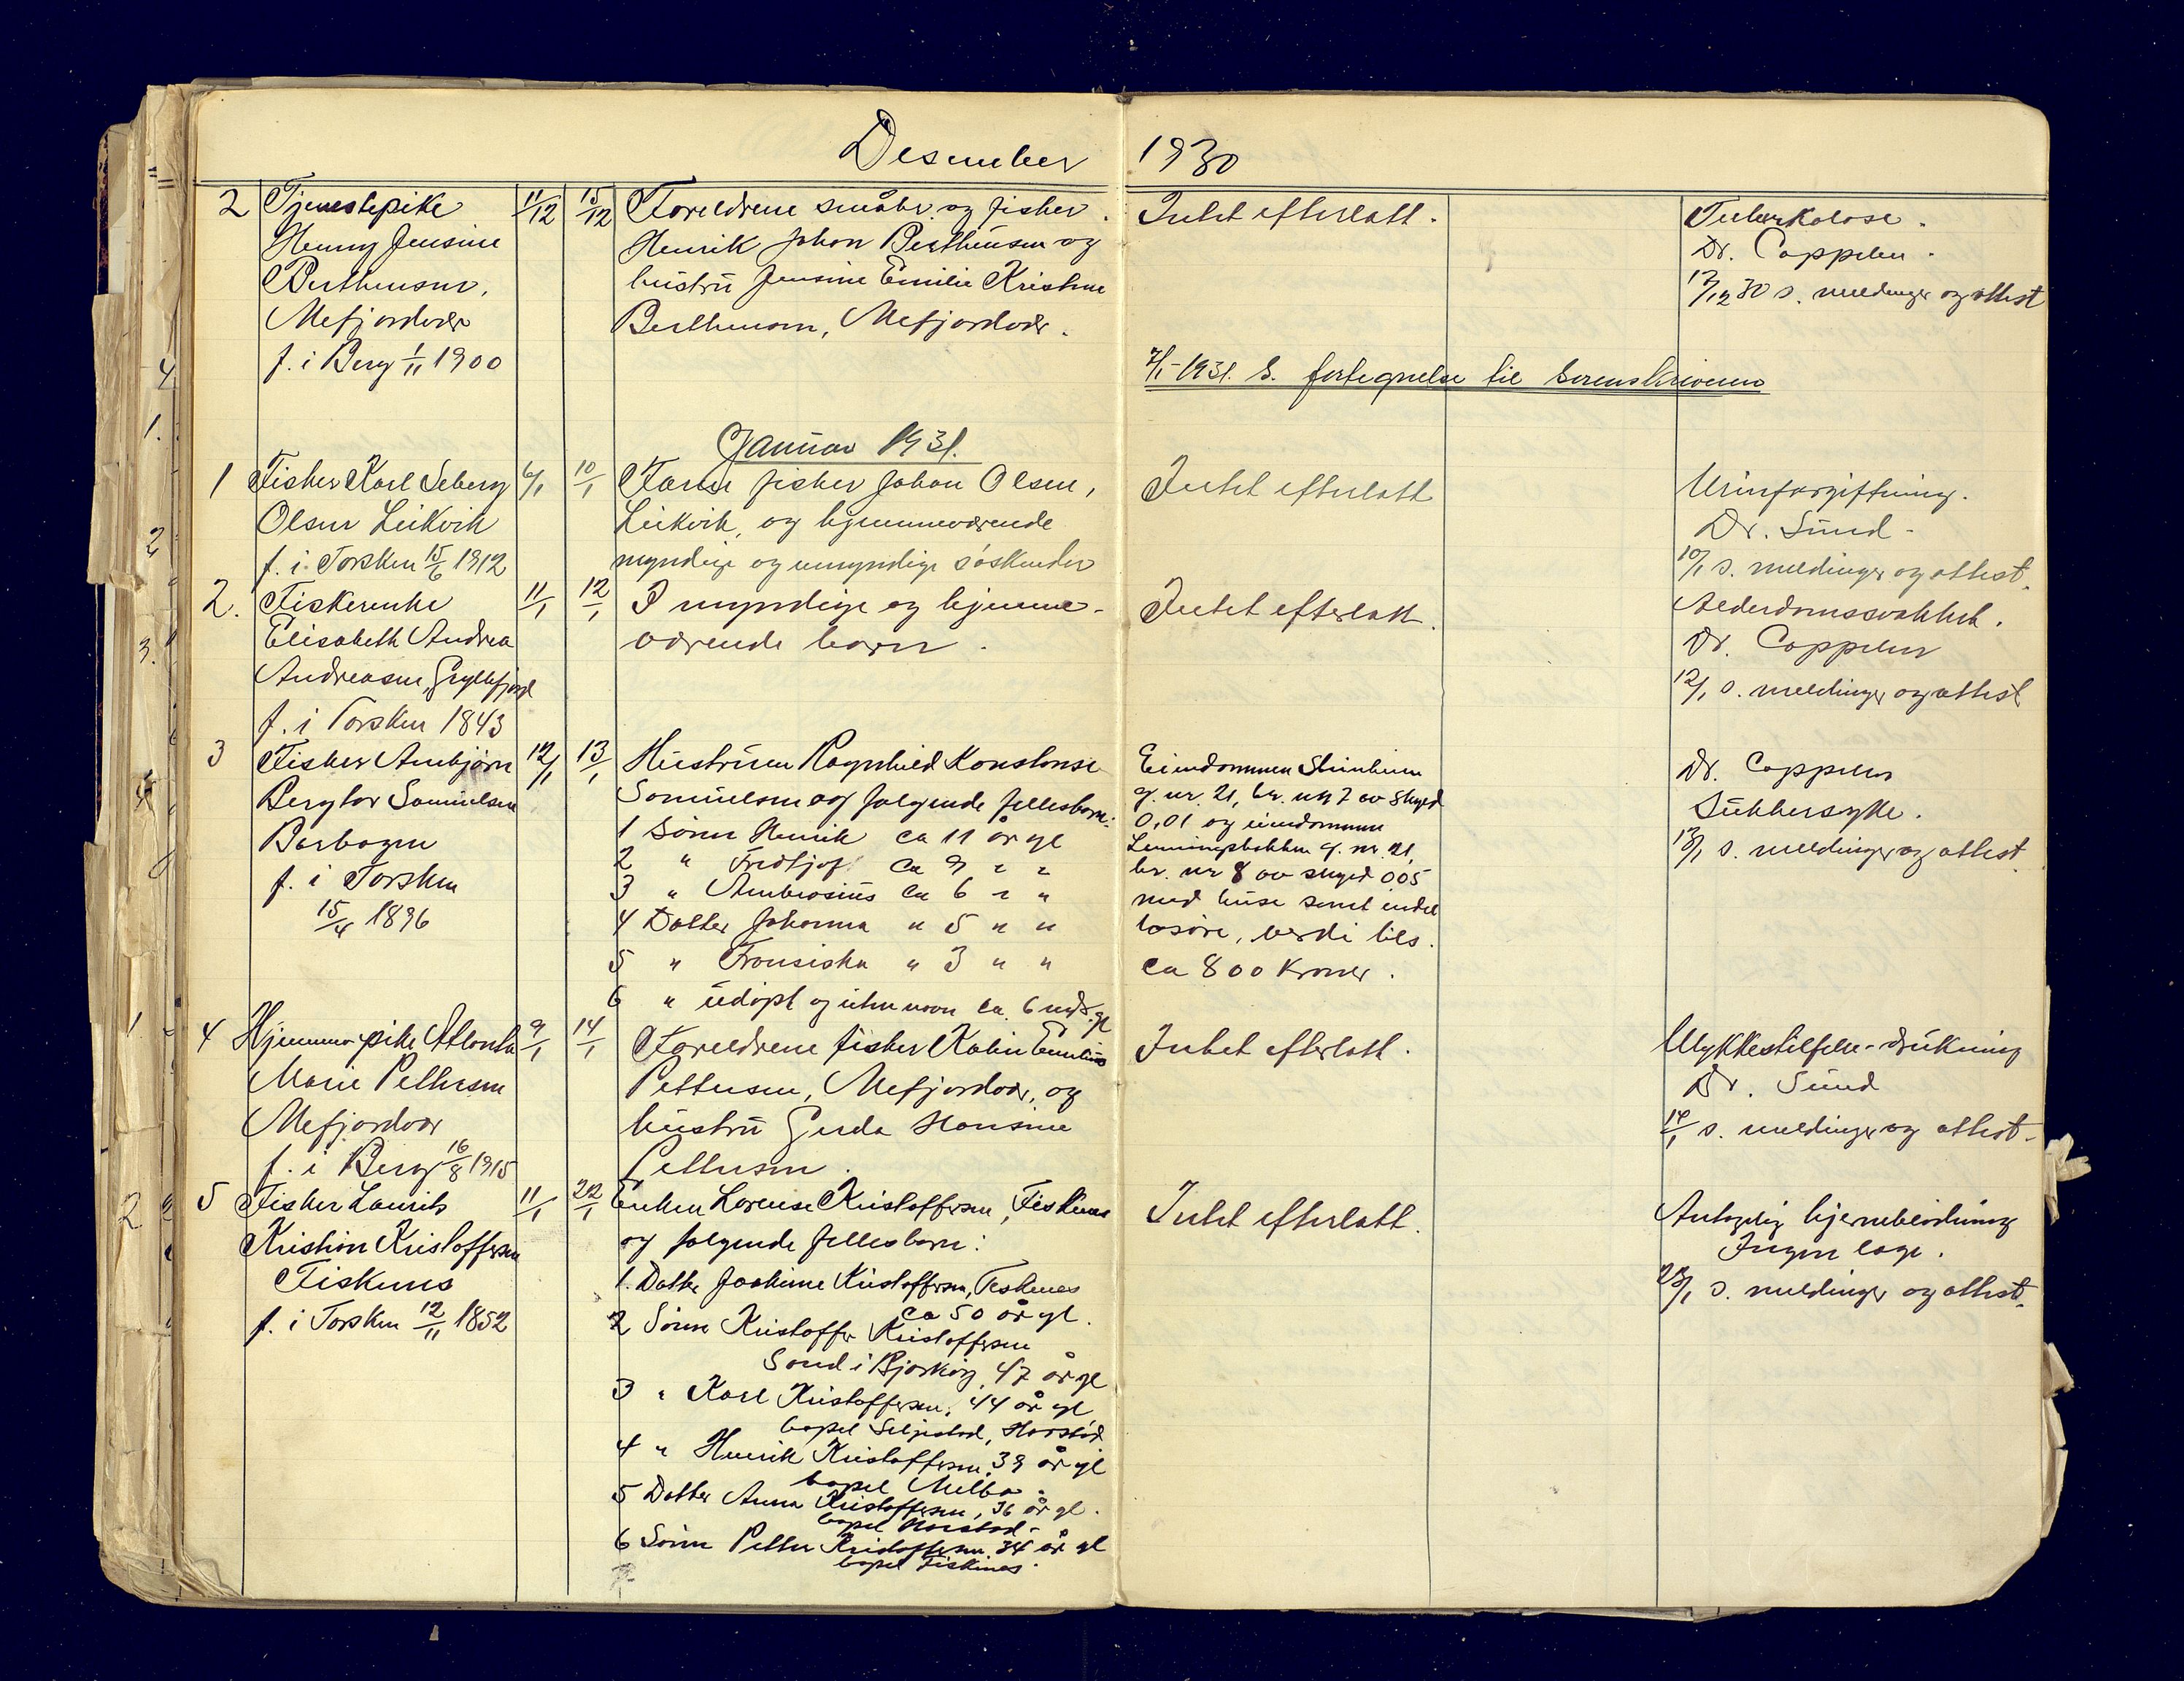 Desember 1930
2 Tjenestepike 11/12 15/12 Foreldrene småbr. og fisker Intet efterlatt. Tuberkolose.
Henny Jensine Henrik Johan Berthinsen og Dr. Coppelen.
Berthensen, hustru Jensine Emilie Kristine 17/12 30 s. meldinger og attest
Mefjordvær Berthensen, Mefjordvær.
f. i Berg 1/11 1900 7/1-1931. S. fortegnelse til Sorenskriveren
Januar 1931.
1 Fisker Karl Seberg 6/1 10/1 Faren fisker Johan Olsen, Intet efterlatt Urinforgiftning.
Olsen Leikvik Leikvik, og hjemmeværende Dr. Sund-
f. i Torsken 15/6 1912 myndige og umyndige søskender 10/1 s. meldinger og attest.
2. Fiskerenke 11/1 12/1 I myndige og hjemme- Intet efterlatt. Alderdomssvakhet.
Elisabeth Andrea værende barn. Dr. Coppelen
Andreasen, Gryllefjord 12/1 s. meldinger og attest
f. i Torsken 1843
3 Fisker Arnbjørn 12/1 13/1 Hustruen Ragnhild Konstanse Eiendommen Steinheim Dr. Coppelen
Bergtor Samuelsen Samuelsen og følgende fellesbarn: g. nr. 21, br. nr 7 av skyld Sukkersyke.
Barbogen 1 Sønn Henrik ca 11 år gl 0,01 og eiendommen 13/1 s. meldinger og attest
f. i Torsken 2 " Fridtjof ca 9 " " g. nr. 21,
15/4 1896 3 " Ambrosius ca 6 " " br. nr 8 av skyld 005
4 Datter Johanna " 5 " " med huse samt endel
5 " Fransiska " 3 " " løsøre, verdi tils.
6 " udøpt og uten navn ca. 6 mdr. gl ca 800 kroner.
4 Hjemme pike Atlanta 9/1 14/1 Foreldrene fisker Kolin Emilius Intet efterlatt. Ulykkestilfelle-drukning
Marie Pettersen Pettersen, Mefjordvær, og Dr. Sund
Mefjordvær hustru Gerda Hansine 14/1 s. meldinger og attest-
f. i Berg 16/8 1915 Pettersen.
5 Fisker Laurits 11/1 22/1 Enken Lorense Kristoffersen, Fiskenes Intet efterlatt. Antagelig hjerneblødning
Kristian Kristoffersen og følgende fellesbarn: Ingen læge.
Fiskenes 1. Datter Joakime Kristoffersen, Fiskenes 23/1 s. meldinger og attest.
f. i Torsken 12/11 1852 ca 50 år gl.
2 Sønn Kristoffer Kristoffersen
Sand i Bjarkøy, 47 år gl
3 " Karl Kristoffersen, 44 år gl
bopel Seljestad, Harstad
4 " Henrik Kristoffersen, 39 år gl
bopel Melbo.
5 Datter Anna Kristoffersen, 36 år gl.
bopel Harstad-
6 Sønn Petter Kristoffersen, 34 år gl
bopel Fiskenes.